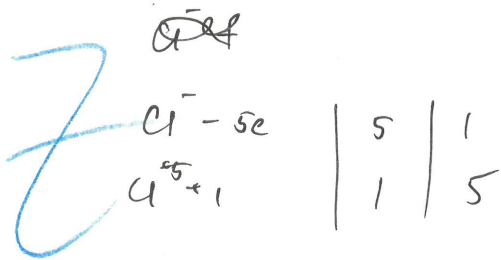 Cl⁻ - 5e | 5 | 1
Cl⁺⁵ + 1 | 1 | 5